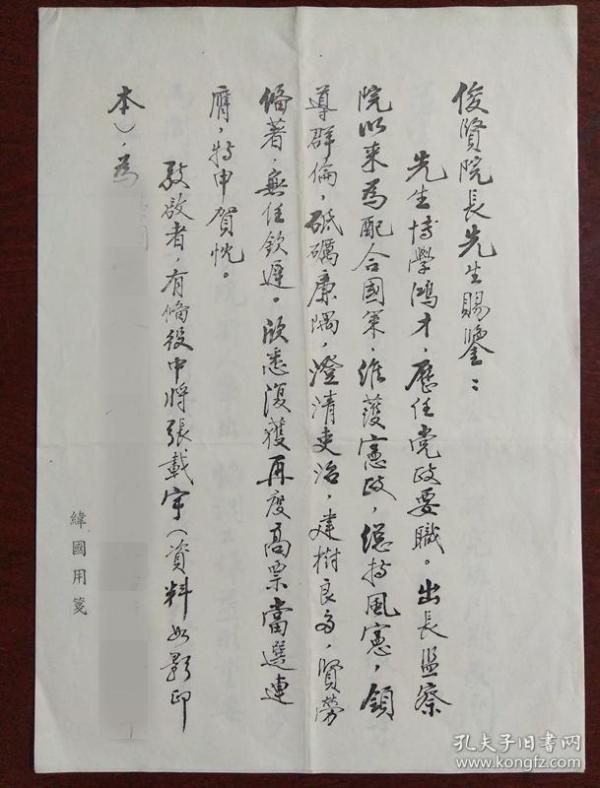 俊賢院長先生賜鑒：
先生博學鴻才，歷任党政要職。出長监察
院以来為配合國策，維護憲政，總持風憲，領
導群倫，砥礪廉隅，澄清吏治，建樹良多，賢勞
備著，無任欽遲。欣悉復獲再度高票當選連
膺，特申賀忱。
敬啟者，有備役中將張載宇（資料如影印
本），為
緯國用箋
孔夫子旧书网
www.kongfz.com